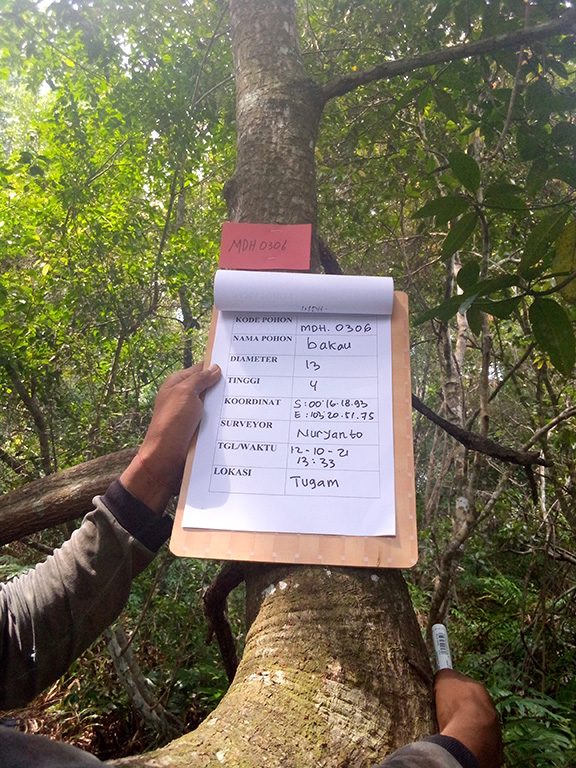 MDH 0306
KODE POHON MDH. 0306
NAMA POHON bakau
DIAMETER 13
TINGGI 4
KOORDINAT S:00°16.18.93
E: 103°20.51.75
SURVEYOR Nuryanto
TGL/WAKTU 12-10-21
13:33
LOKASI Tugam